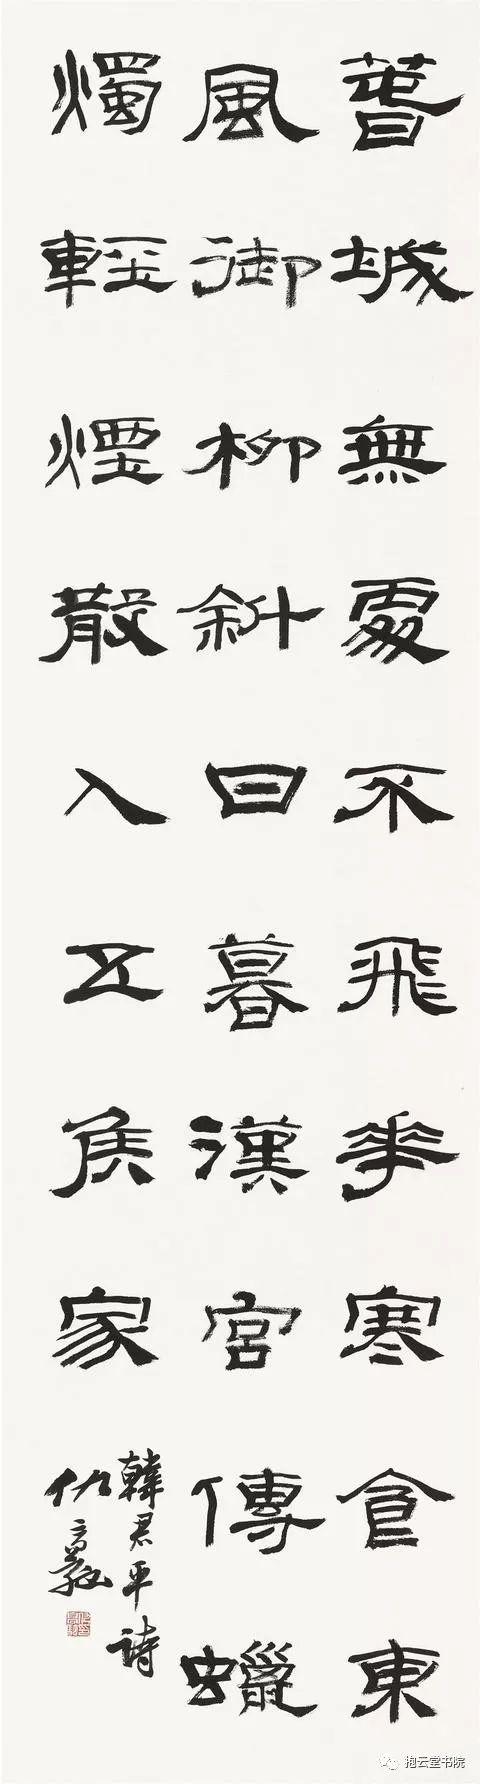 萅城無處不飛花寒食東
風御柳斜日暮漢宮傳蠟
燭輕煙散入五侯家
韓君平詩
仇高馴
抱云堂书院